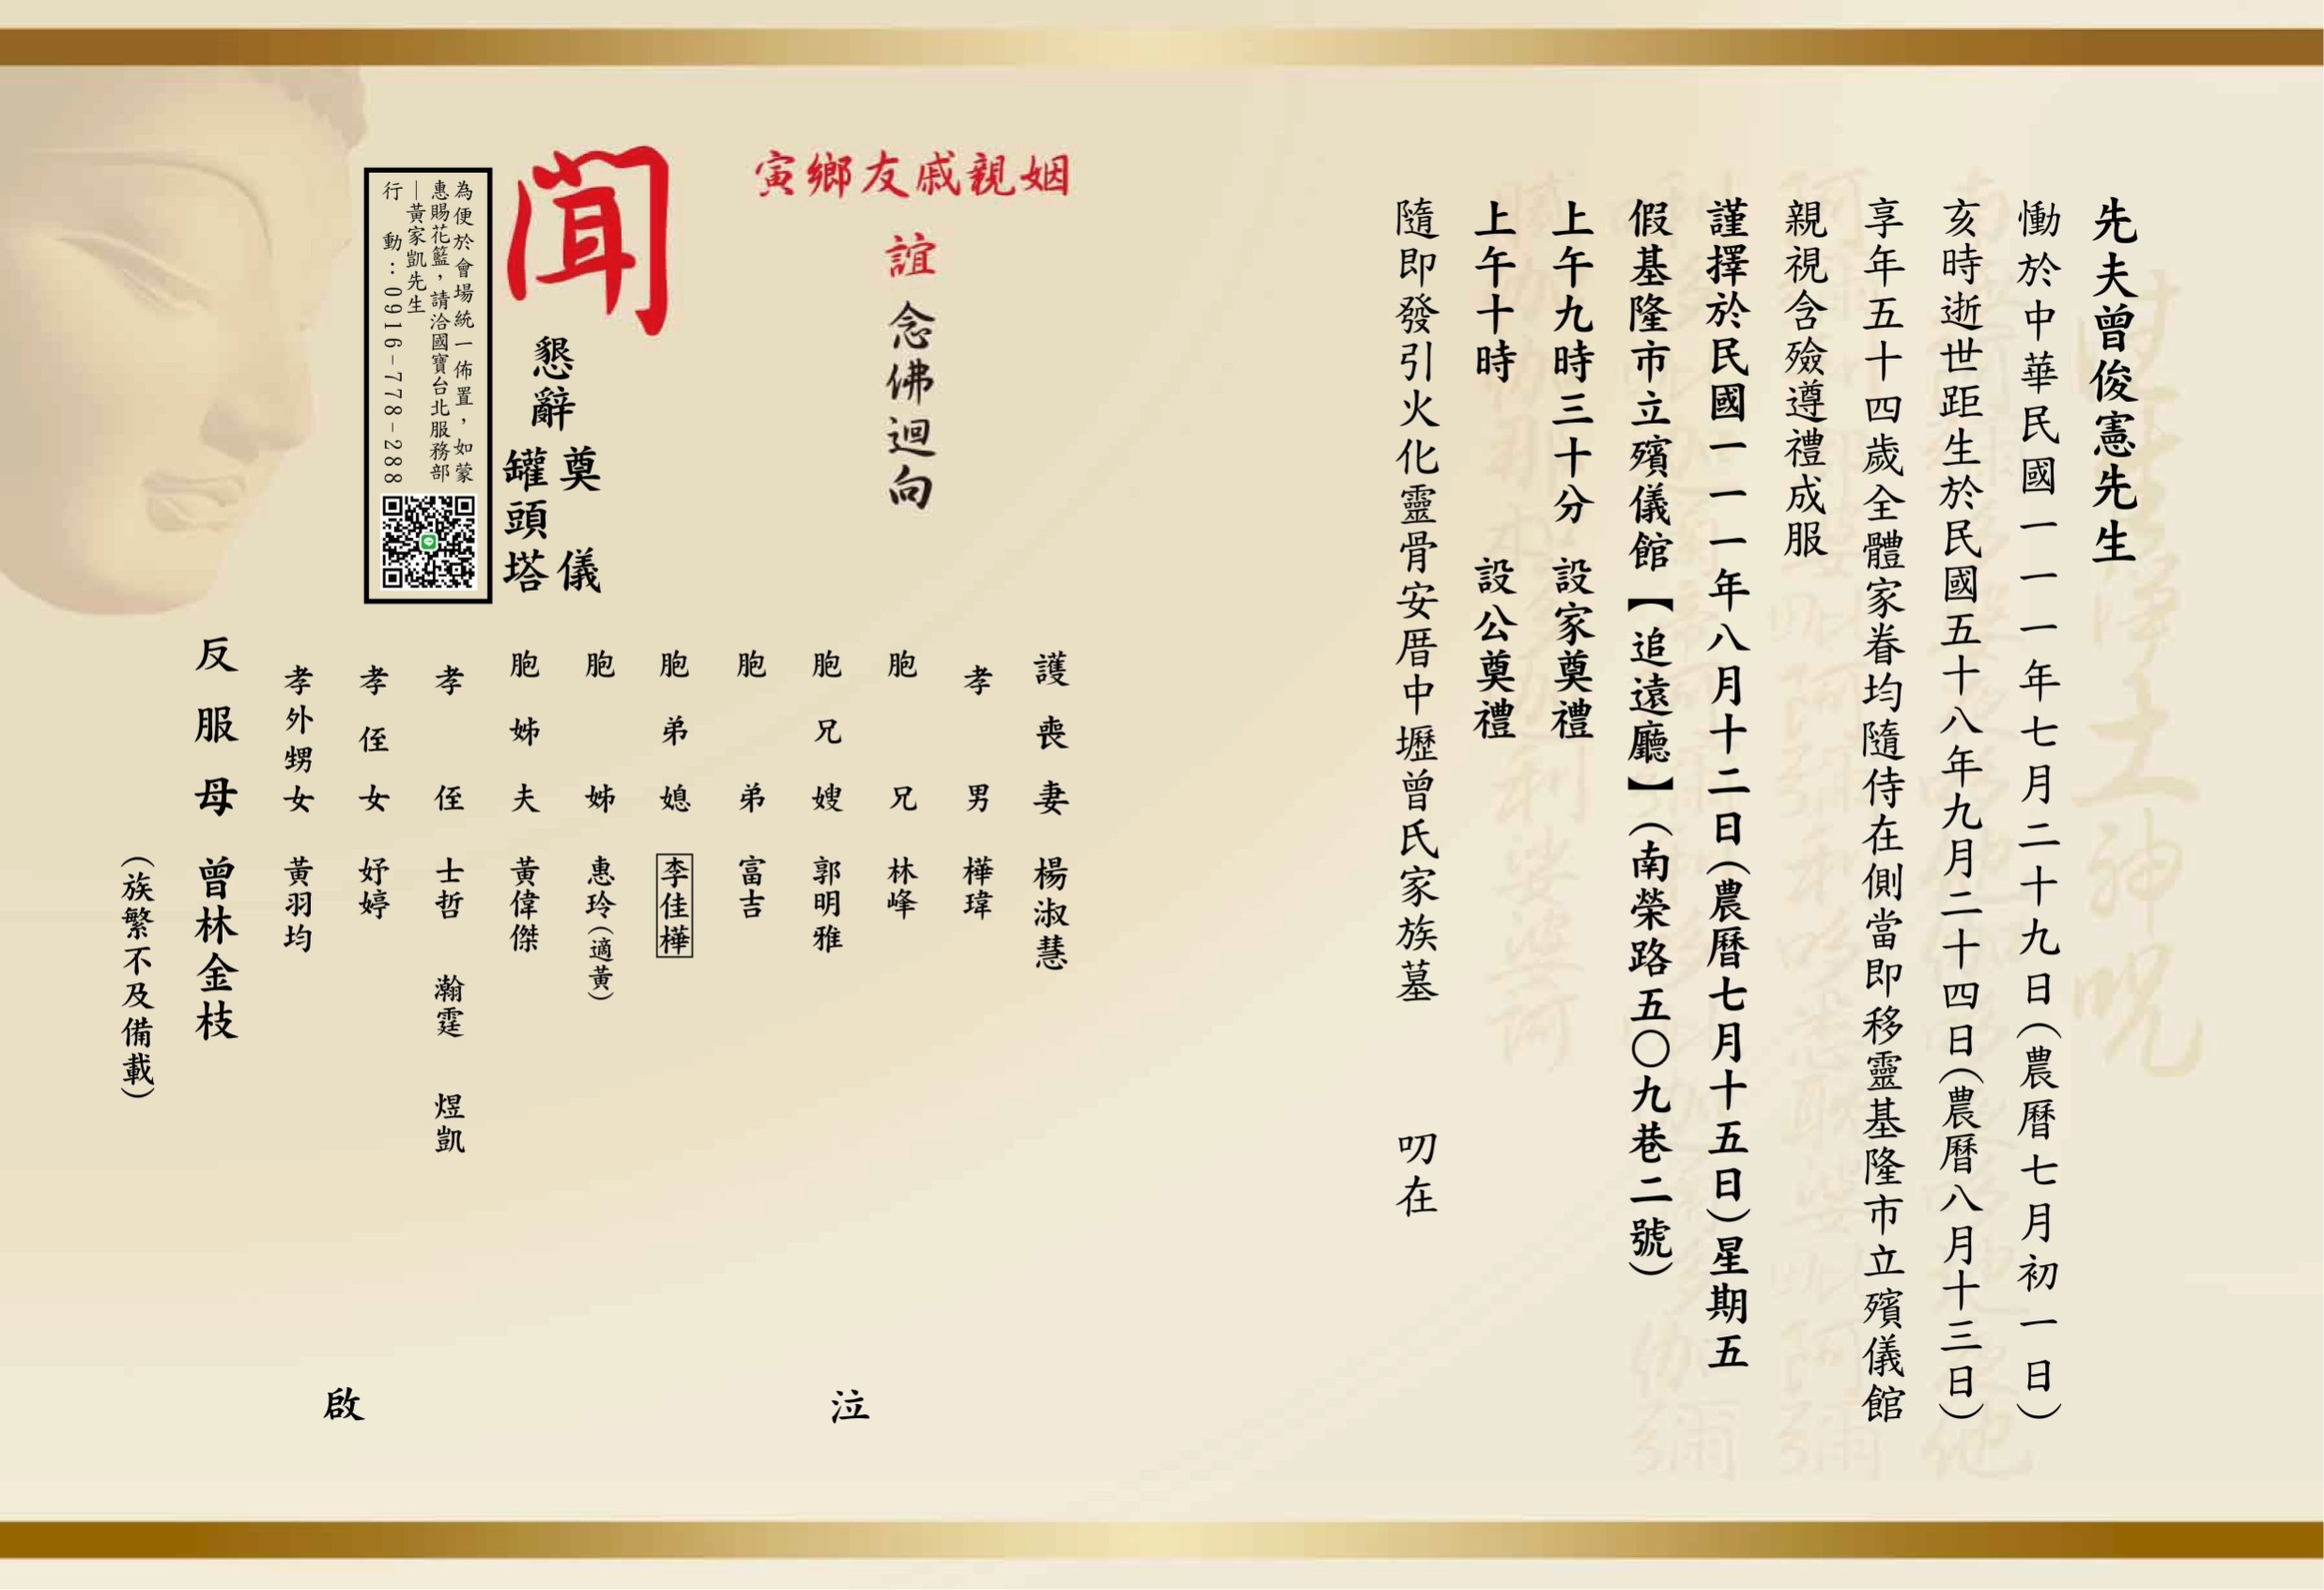 先夫曾俊憲先生
慟於中華民國一一一年七月二十九日(農曆七月初一日)
亥時逝世距生於民國五十八年九月二十四日(農曆八月十三日)
享年五十四歲全體家眷均隨侍在側當即移靈基隆市立殯儀館
親視含殮遵禮成服
謹擇於民國一一一年八月十二日(農曆七月十五日)星期五
假基隆市立殯儀館【追遠廳】(南榮路五〇九巷二號)
上午九時三十分 設家奠禮
上午十時 設公奠禮
隨即發引火化靈骨安厝中壢曾氏家族墓 叨在
姻親戚友鄉寅
誼 念佛迴向
聞
懇辭
奠儀
罐頭塔
為便於會場統一佈置,如蒙
惠賜花籃,請洽國寶台北服務部
—黃家凱先生
行動:0916-778-288
護喪妻 楊淑慧
孝男 樺瑋
胞兄 林峰
胞兄嫂 郭明雅
胞弟 富吉
胞弟媳 李佳樺
胞姊 惠玲(適黃)
胞姊夫 黃偉傑
孝侄 士哲 瀚霆 煜凱
孝侄女 妤婷
孝外甥女 黃羽均
反服母 曾林金枝
(族繁不及備載)
泣
啟
往生淨土神咒